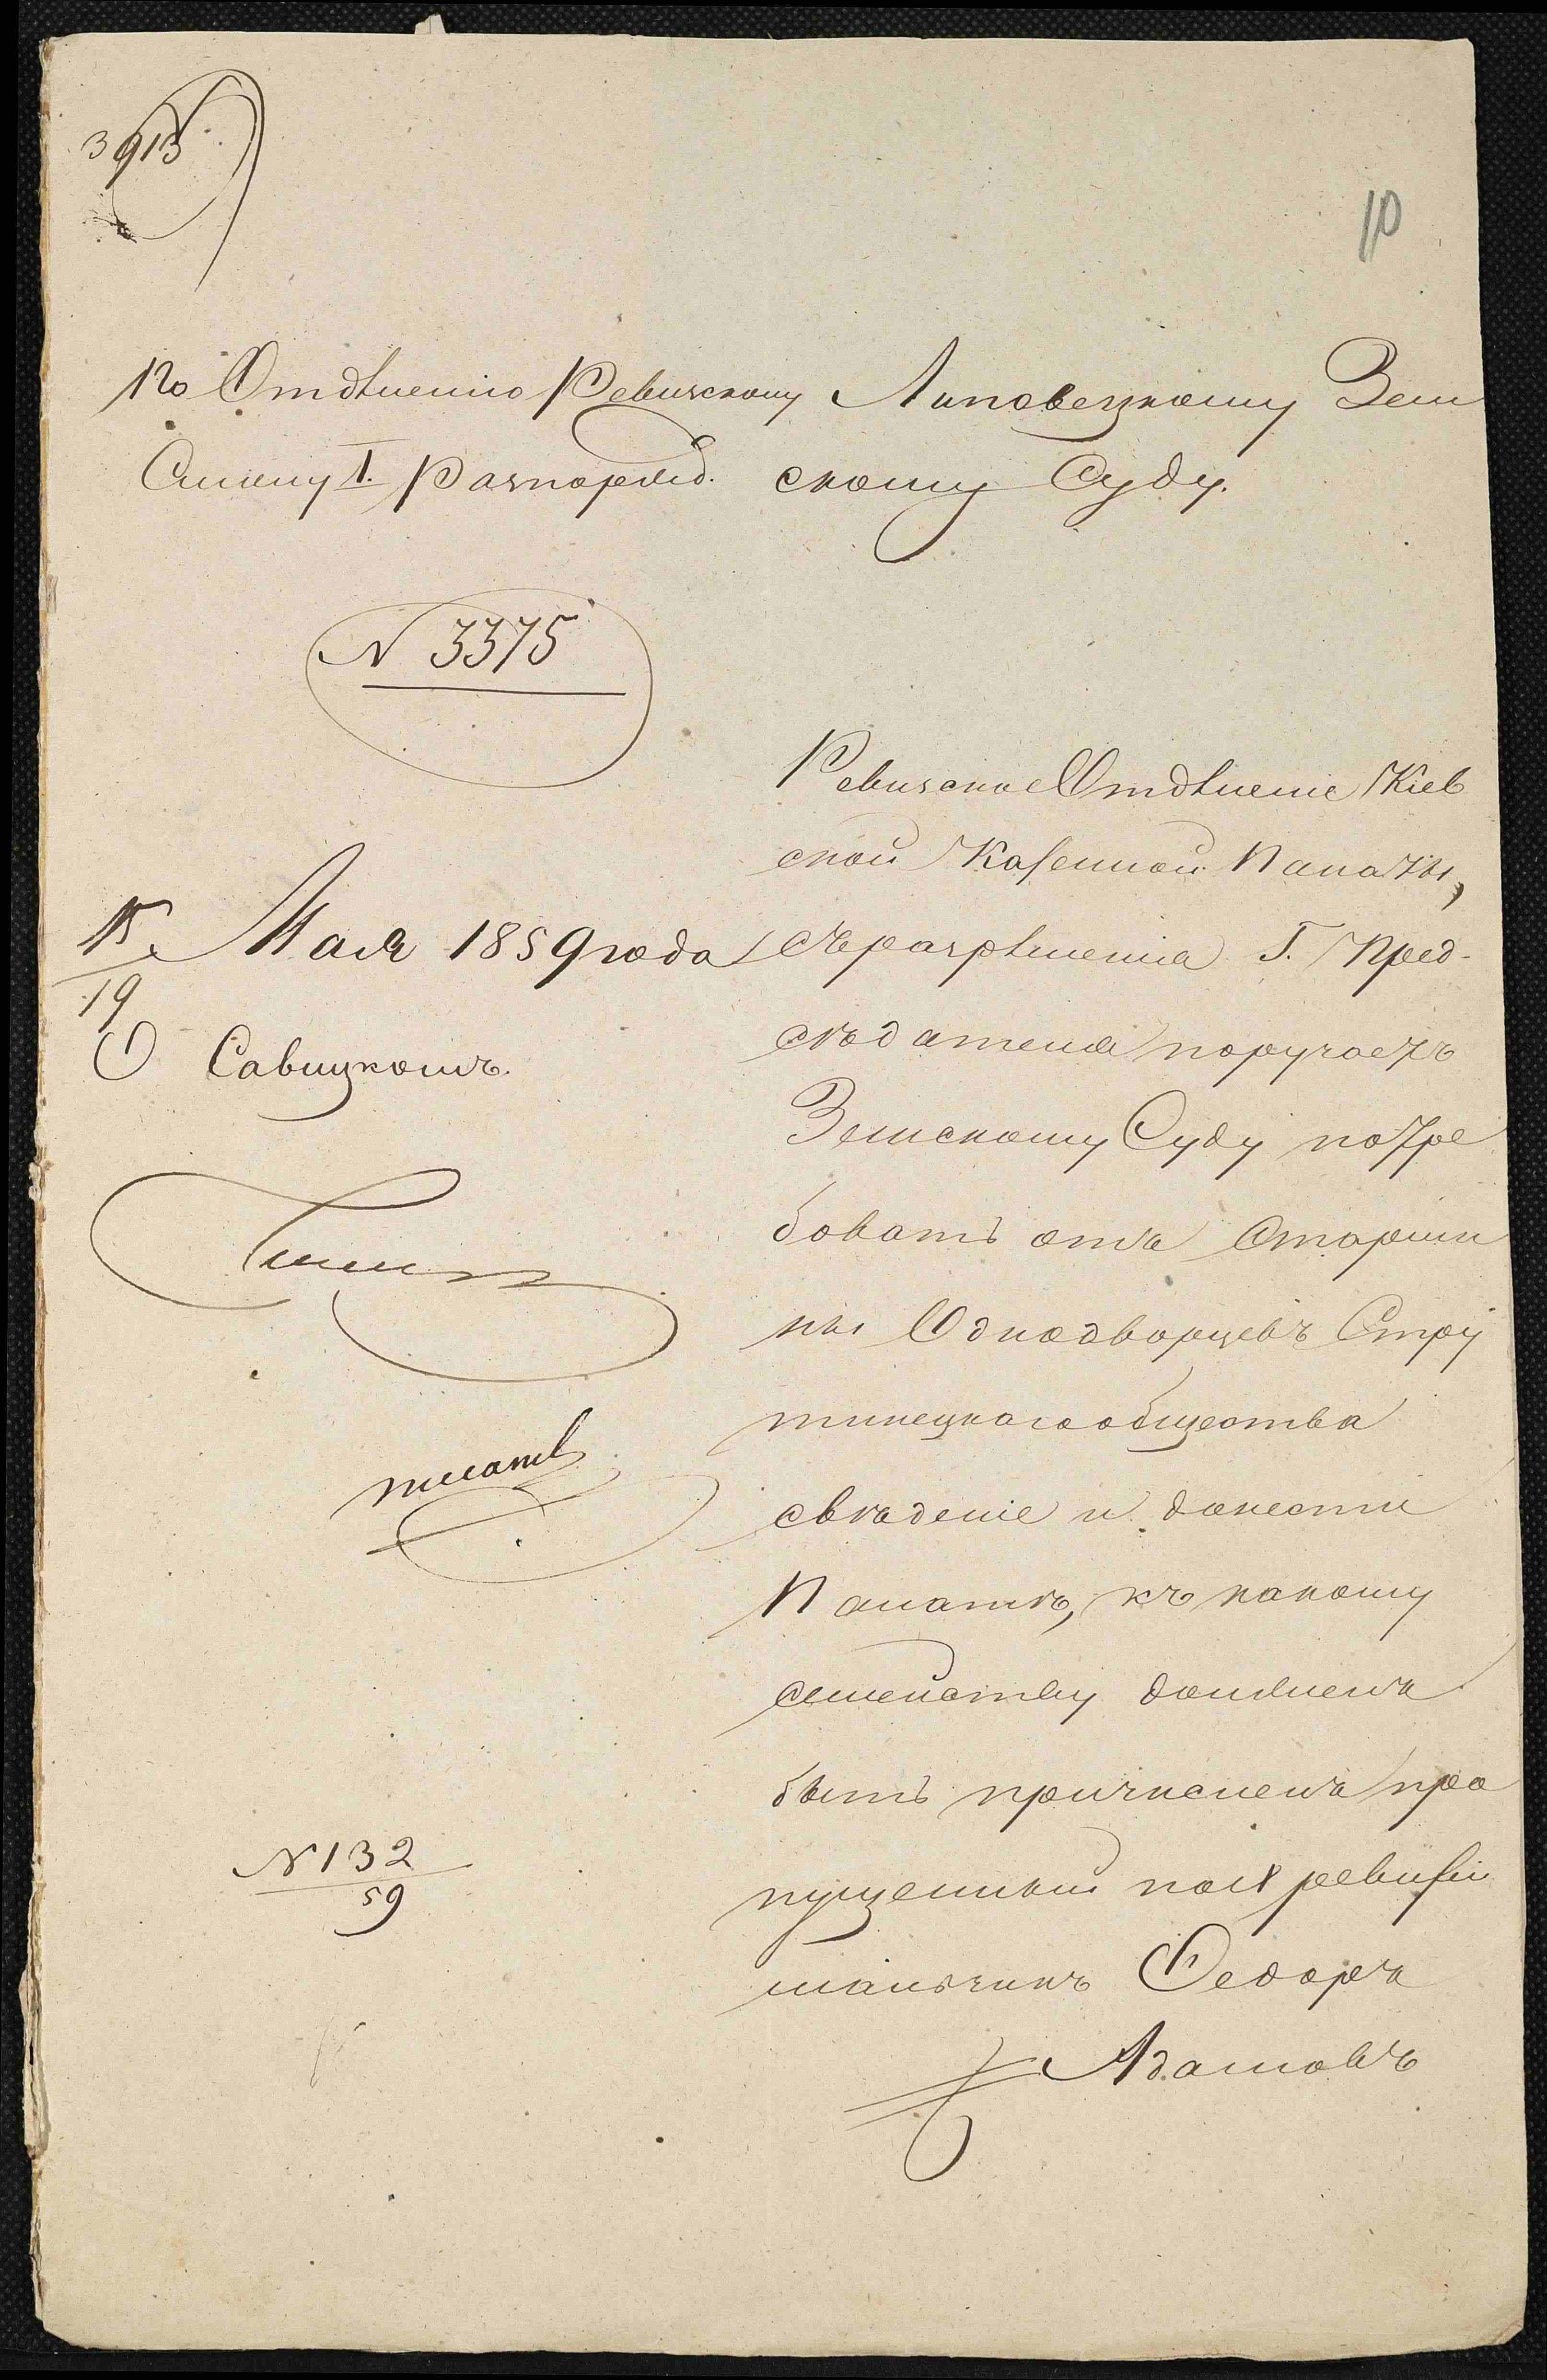 3913
10
По Отдѣленію Ревизскому
Столу I. Распоряд.
Липовецкому Зем
скому Суду.
N 3375
15 Мая 1859 года
19
О Савицкомъ.
Ревизское Отдѣленіе Кіев
ской Казенной Палаты,
съ разрѣшенія Г. Пред-
сѣдателя поручаетъ
Земскому Суду потре
бовать отъ Старши
ны Однодворцевъ Стру
тинецкаго общества
свѣденіе и донести
Палатѣ, къ какому
семейству долженъ
быть причисленъ про
пущенный по IX ревизіи
мальчикъ Федоръ
Адамовъ
писать
N 132
59